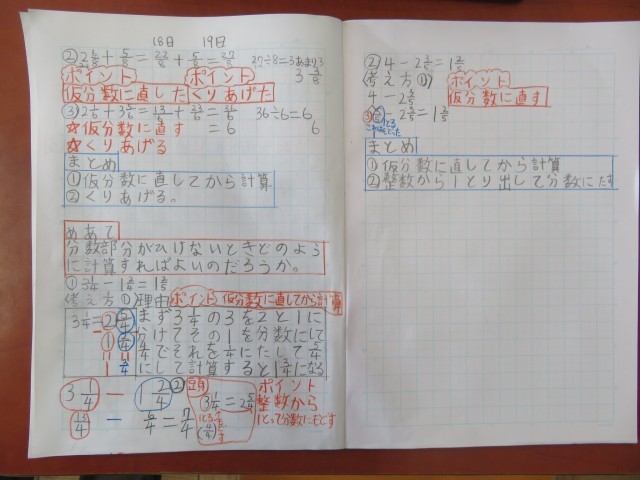 18日 19日
②2 6/8 + 5/8 = 22/8 + 5/8 = 27/8 27÷8=3あまり3
ポイント ポイント 3 3/8
仮分数に直した くりあげた
36÷6=6
☆仮分数に直す = 6 6
☆くりあげる
まとめ
①仮分数に直してから計算
②くりあげる。
めあて
分数部分がひけないときどのよう
に計算すればよいのだろうか。
①3 1/4 − 1 2/4 = 1 3/4
考え方① 理由 ポイント 仮分数に直してから計算
3 1/4 = 2 5/4
まず3 1/4の3を2と1に
分けてその1を分数にして
4/4でそれを1/4にたして5/4
にして計算すると1 3/4になる
3 1/4 − 1 2/4
13/4 − 6/4 = 7/4
②
3 1/4 = 2 5/4
ポイント
整数から
1とって分数にもどす
②4 − 2
考え方① ポイント
仮分数に直す
4 − 2
まとめ
①仮分数に直してから計算
②整数から1とり出して分数にたす